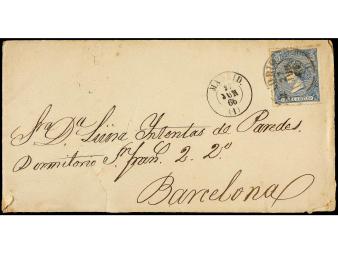 MADRID
JUN
66
(1)
Sra Da Luisa Intentas de Paredes.
Dormitorio Sn fran. 2. 2o
Barcelona